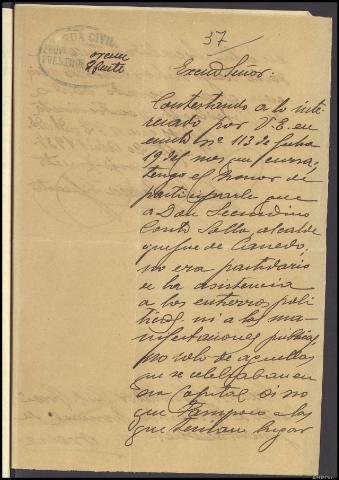 37
GUARDIA CIVIL
PUESTO DE
Excmo Señor:
Contestando a lo inte
resado por V.E. en
escrito nº 113 de fecha
19 del mes que cursa,
tengo el honor de
participarle que
a Don Secundino
Couto Solla, alcalde
que fue de Canedo,
no era partidario
de la asistencia
a los entierros polí
ticos ni a las ma-
nifestaciones públicas,
no solo de aquellas
que se celebraban en
esa Capital, si no
que tampoco a las
que tenian lugar